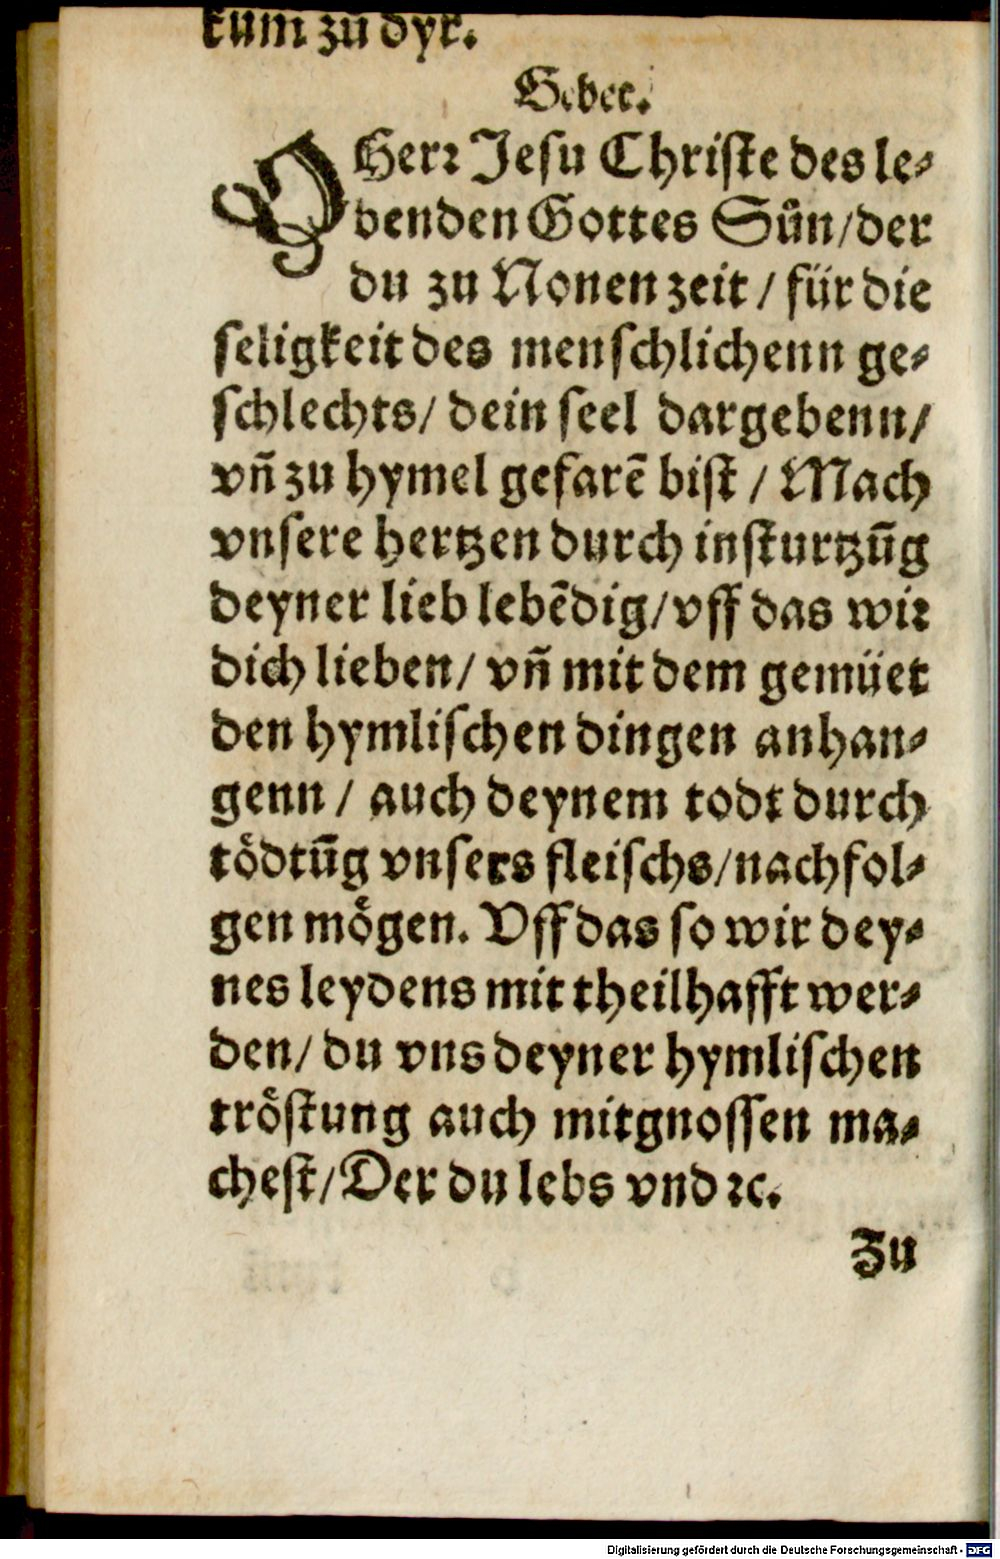 kum zu dyr.
Gebet.
O Herr Jesu Christe des le⸗
benden Gottes Sůn/der
du zu Nonen zeit / für die
seligkeit des menschlichenn ge⸗
schlechts/ dein seel dargebenn/
vn̄ zu hymel gefarē bist / Mach
vnsere hertzen durch insturtzūg
deyner lieb lebēdig/vff das wir
dich lieben/ vn̄ mit dem gemüet
den hymlischen dingen anhan⸗
genn / auch deynem todt durch
tödtūg vnsers fleischs/nachfol⸗
gen mögen. Vff das so wir dey⸗
nes leydens mit theilhafft wer⸗
den/ du vns deyner hymlischen
tröstung auch mitgnossen ma⸗
chest/Der du lebs vnd ꝛc.
Zu
Digitalisierung gefördert durch die Deutsche Forschungsgemeinschaft - DFG